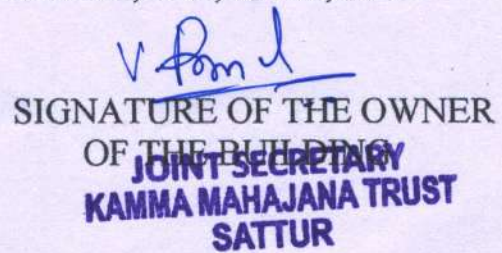 SIGNATURE OF THE OWNER
OF THE BUILDING
JOINT SECRETARY
KAMMA MAHAJANA TRUST
SATTUR